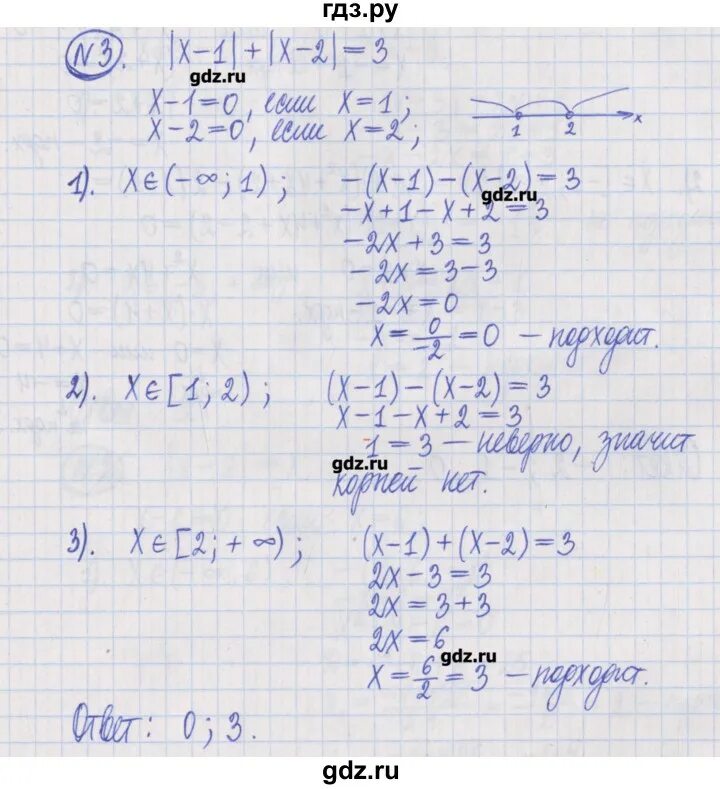 гдз.ру
№3. |x-1|+|x-2|=3
gdz.ru
x-1=0, если x=1;
x-2=0, если x=2;
1 2 x
1). x∈(-∞; 1); -(x-1)-(x-2)=3
gdz.ru
-x+1-x+2=3
-2x+3=3
-2x=3-3
-2x=0
x=0/-2=0 — подходит.
2). x∈[1; 2); (x-1)-(x-2)=3
x-1-x+2=3
1=3 — неверно, значит
gdz.ru
корней нет.
3). x∈[2; +∞); (x-1)+(x-2)=3
2x-3=3
2x=3+3
2x=6
gdz.ru
x=6/2=3 — подходит.
Ответ: 0; 3.
gdz.ru